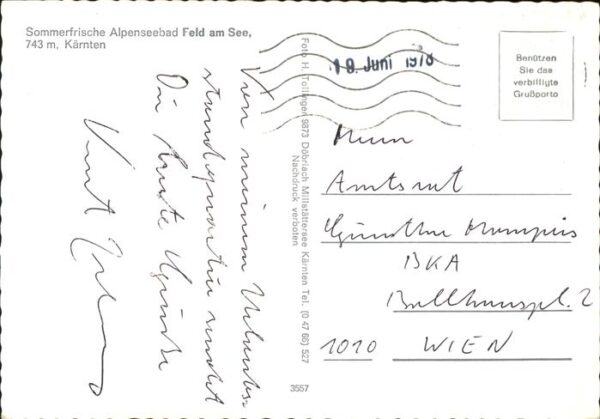 Sommerfrische Alpenseebad Feld am See,
743 m, Kärnten
Von meinem Urlaubs-
standquartier sendet
Die besten Grüße
Kurt
Foto H. Tollinger 9873 Döbriach Millstättersee Kärnten Tel. (0 47 66) 527
Nachdruck verboten
3557
18. Juni 1978
Benützen
Sie das
verbilligte
Grußporto
Herrn
Amtsrat
Günther
BKA
Ballhauspl. 2
1010 WIEN